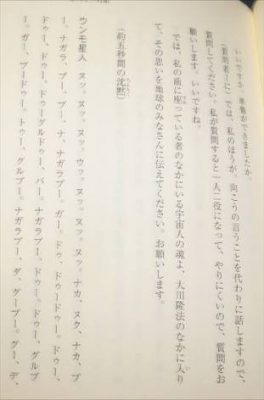 いいですか。準備ができましたか。
（質問者Ｉに）では、私のほうが、向こうの言うことを代わりに話しますので、
質問してください。私が質問すると一人二役になって、やりにくいので、質問をお
願いします。いいですね。
では、私の前に座っている者のなかにいる宇宙人の魂よ、大川隆法のなかに入り
て、その思いを地球のみなさんに伝えてください。お願いします。
（約五秒間の沈黙）
ウンモ星人　ヌッ。ヌッ。ヌッ。ウッ、ヌッ。ヌッ。ヌッ。ナカ、ヌク、ナカ、ブ
ー、ナガラ、ブー、ブー、ナ、ナガラブー。ガー。ドゥ、ドゥドゥードゥー、
ドゥー、ドゥー、ドゥーグルドゥー、バー。ナガラブー、ドゥー、ドゥー、グルブ
ー。ガー、ブードゥー。トゥー、グルブー。ナガラブー、ダ、グーブー。グー、デ、